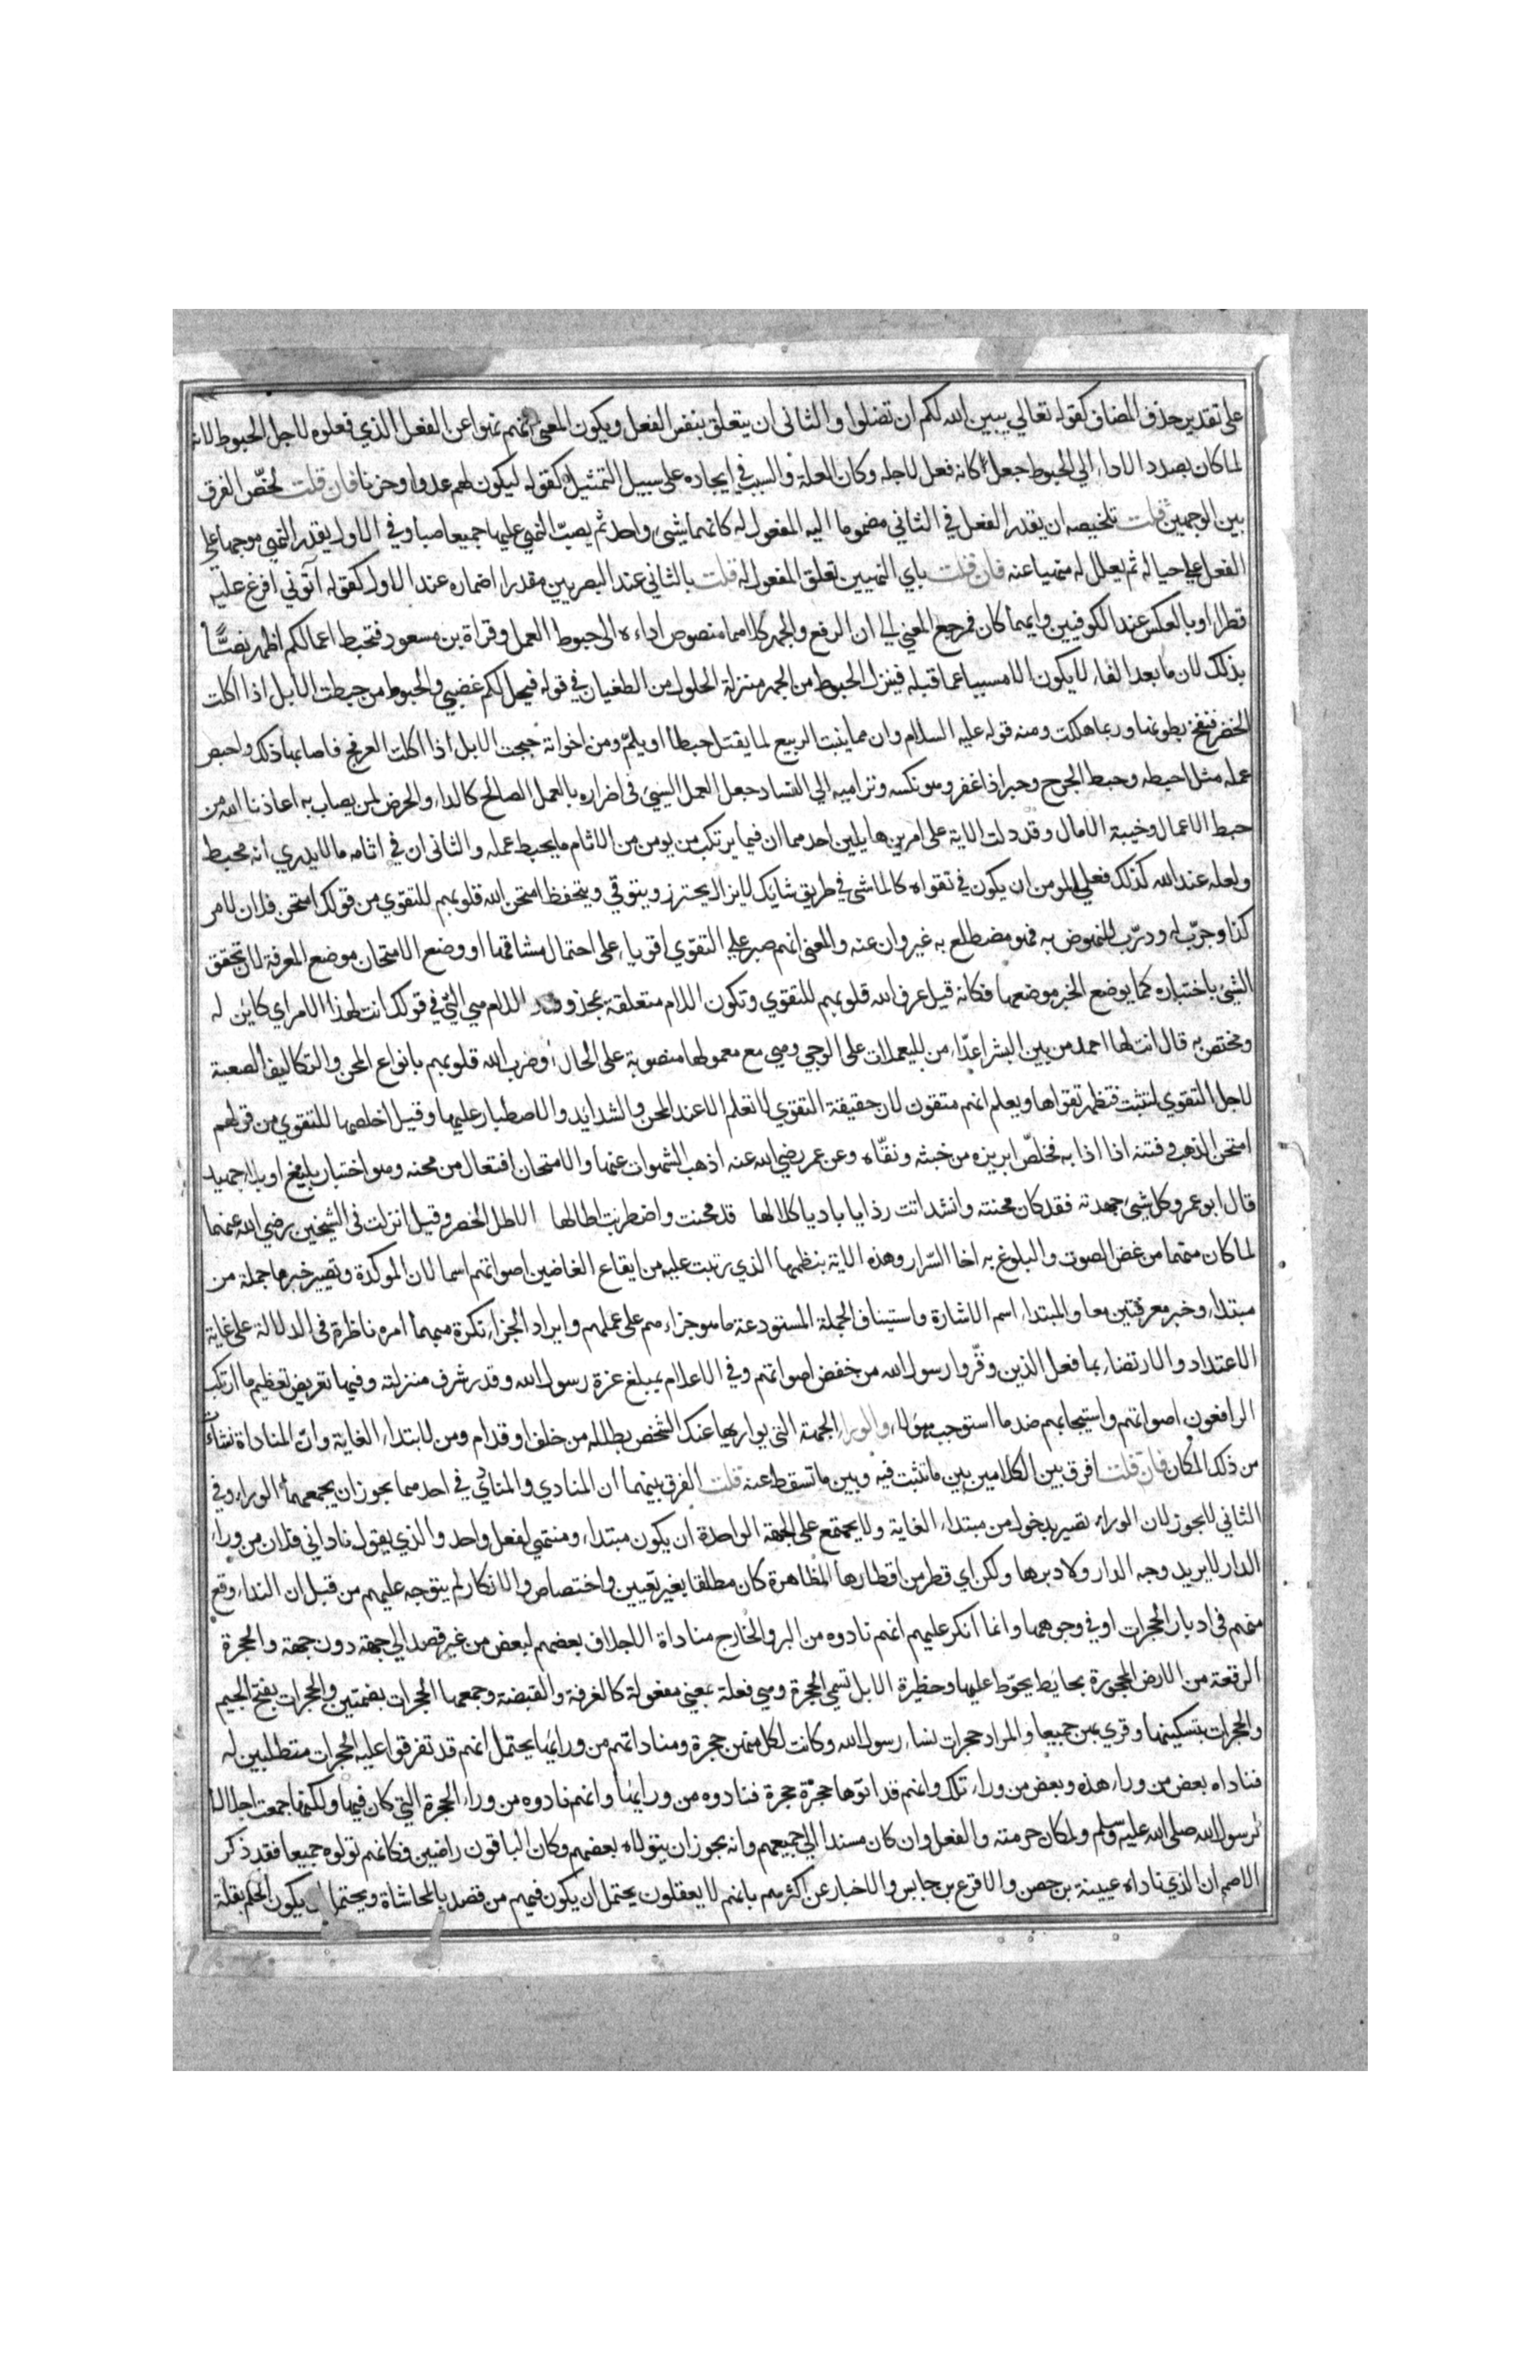 على تقدير حذف المضاف كقوله تعالي يبين الله لكم ان تضلوا والثانى ان يتعلق بنفس الفعل ويكون المعنى انهم نهوا عن الفعل الذي فعلوه لاجل الحبوط لانه
لما كان بصدد الاداء الي الحبوط جعل كانه فعل لاجله وكان العلة والسبب في ايجاده على سبيل التمثيل كقوله ليكون لهم عدوا وحزنا فان قلت لخّص الفرق
بين الوجهين قلت تلخيصه ان يقدر الفعل في الثاني مضموما اليه المفعول له كانهما شيئ واحد ثم يصبّ النهي عليهما جميعا صبا وفي الاول يقدر النهي موجها علي
الفعل علي حياله ثم يعلل له منهيا عنه فان قلت باي النهيين تعلق المفعول له قلت بالثاني عند البصريين مقدرا اضماره عند الاول كقوله آتوني افرغ عليه
قطرا وبالعكس عند الكوفيين وايهما كان فمرجع المعني الي ان الرفع والجهر كلاهما منصوص اداءه الى حبوط العمل وقراة بن مسعود فتحبط اعمالكم اظهر نصًّا
بذلك لان ما بعد الفاء لا يكون الا مسببا عما قبله فينزل الحبوط من الجهر منزلة الحلول من الطغيان في قوله فيحل لكم غضبي والحبوط من حبطت الابل اذا اكلت
الخضر فنفخ بطونها وربما هلكت ومنه قوله عليه السلام وان مما ينبت الربيع لما يقتل حبطا او يلمّ ومن اخواته حبجت الابل اذا اكلت العرفج فاصابها ذلك واحبض
عمله مثل احبطه وحبط الجرح وحبر اذا غفر وهو نكسه وتراميه الي الفساد جعل العمل السيئ فى اضراره بالعمل الصالح كالداء والحرض لمن يصاب به اعاذنا الله من
حبط الاعمال وخيبة الامال وقد دلت الاية على امرين هايلين احدهما ان فيما يرتكب من يومن من الاثام ما يحبط عمله والثانى ان في اثامه ما لا يدري انه محبط
ولعله عند الله كذلك فعلي المومن ان يكون في تقواه كالماشى في طريق شايك لا يزال يحترز ويتوقي ويتحفظ امتحن الله قلوبهم للتقوي من قولك امتحن فلان لامر
كذا وجرّب له ودرّب للنهوض به فهو مضطلع به غير وان عنه والمعنى انهم صبر علي التقوّي اقوياء على احتمال مشاقها او وضع الامتحان موضع المعرفة لان تحقق
الشيئ باختباره كما يوضع الخبر موضعها فكانه قيل عرف الله قلوبهم للتقوي وتكون اللام متعلقة بمحذوف اللام هي التي في قولك انت لهذا الامر اي كاين له
ومختص به قال انت لها احمد من بين البشر اعدّاء من لليعملات على الوجي وهي مع معمولها منصوبة على الحال او ضرب الله قلوبهم بانواع المحن والتكاليف الصعبة
لاجل التقوي لتثبت فتظهر تقواها ويعلم انهم متقون لان حقيقة التقوي لا تعلم الا عند المحن والشدايد والاصطبار عليها وقيل اخلصها للتقوي من قولهم
امتحن الذهب وفتنه اذا اذابه فخلّص ابريزه من خبثه ونقّاه وعن عمر رضي الله عنه اذهب الشهوات عنها والامتحان افتعال من محنه وهو اختبار بليغ او بلاء جهيد
قال ابو عمرو كل شيئ جهدته فقد كان محنته وانشد اتت رذايا باديا كلالها قد محنت واضطربت اطالها الاطل الخصر وقيل انزلت فى الشيخين رضي الله عنهما
لما كان منهما من غض الصوت والبلوغ به اخا السّرار وهذه الاية بنظمها الذي رتبت عليه من ايقاع الغاضين اصواتهم اسما لان الموكدة وتصيير خبرها جملة من
مبتداء وخبر معرفتين معا والمبتداء اسم الاشارة واستيناف الجملة المستودعة ما هو جزاء هم على عملهم وايراد الجزاء نكرة مبهما امره ناظرة فى الدلالة على غاية
الاعتداد والارتضاء بما فعل الذين وقّروا رسول الله من خفض اصواتهم وفي الاعلام بمبلغ عزة رسول الله وقدر شرف منزلته وفيها تعريض تعظيم ما ارتكب
الرافعون اصواتهم واستيجابهم ضد ما استوجب هؤلاء والوراء الجهة التى يواريها عنك الشخص بظلله من خلف او قدام ومن لابتداء الغاية وان المناداة نشات
من ذلك المكان فان قلت افرق بين الكلامين بين ما تثبت فيه وبين ما تسقط عنه قلت الفرق بينهما ان المنادي والمنادي في احدهما يجوز ان يجمعهما الوراء وفي
الثاني لا يجوز لان الوراء تصير بدخول من مبتداء الغاية ولا يجتمع على الجهة الواحدة ان يكون مبتداء ومنتهي لفعل واحد والذي يقول ناداني فلان من وراء
الدار لا يريد وجه الدار ولا دبرها ولكن اي قطر من اقطارها الظاهرة كان مطلقا بغير تعيين واختصاص والانكار لم يتوجه عليهم من قبل ان النداء وقع
منهم فى ادبار الحجرات او في وجوهها وانما انكر عليهم انهم نادوه من البر والخارج مناداة الاجلاف بعضهم لبعض من غير قصد الي جهة دون جهة والحجرة
الرقعة من الارض المحجورة بحايط يحوّط عليها وحظيرة الابل تسمي الحجرة وهي فعلة بمعني مفعولة كالغرفة والقبضة وجمعها الحجرات بضمتين والحجرات بفتح الجيم
والحجرات بتسكينها وقري بهن جميعا والمراد حجرات نساء رسول الله وكانت لكل منهن حجرة ومناداتهم من ورائها يحتمل انهم قد تفرقوا علي الحجرات متطلبين له
فناداه بعض من وراء هذه وبعض من وراء تلك وانهم قد اتوها حجرة حجرة فنادوه من ورايها وانهم نادوه من وراء الحجرة التي كان فيها ولكنها جمعت اجلالا
لرسول الله صلى الله عليه وسلم ولمكان حرمته والفعل وان كان مسندا الي جميعهم وانه يجوز ان يتولاه بعضهم وكان الباقون راضين فكانهم تولوه جميعا فقد ذكر
الاصم ان الذي ناداه عيينة بن حصن والاقرع بن حابس والاخبار عن اكثرهم بانهم لا يعقلون يحتمل ان يكون فيهم من قصد بالمحاشاة ويحتمل ان يكون الحكم بقلة